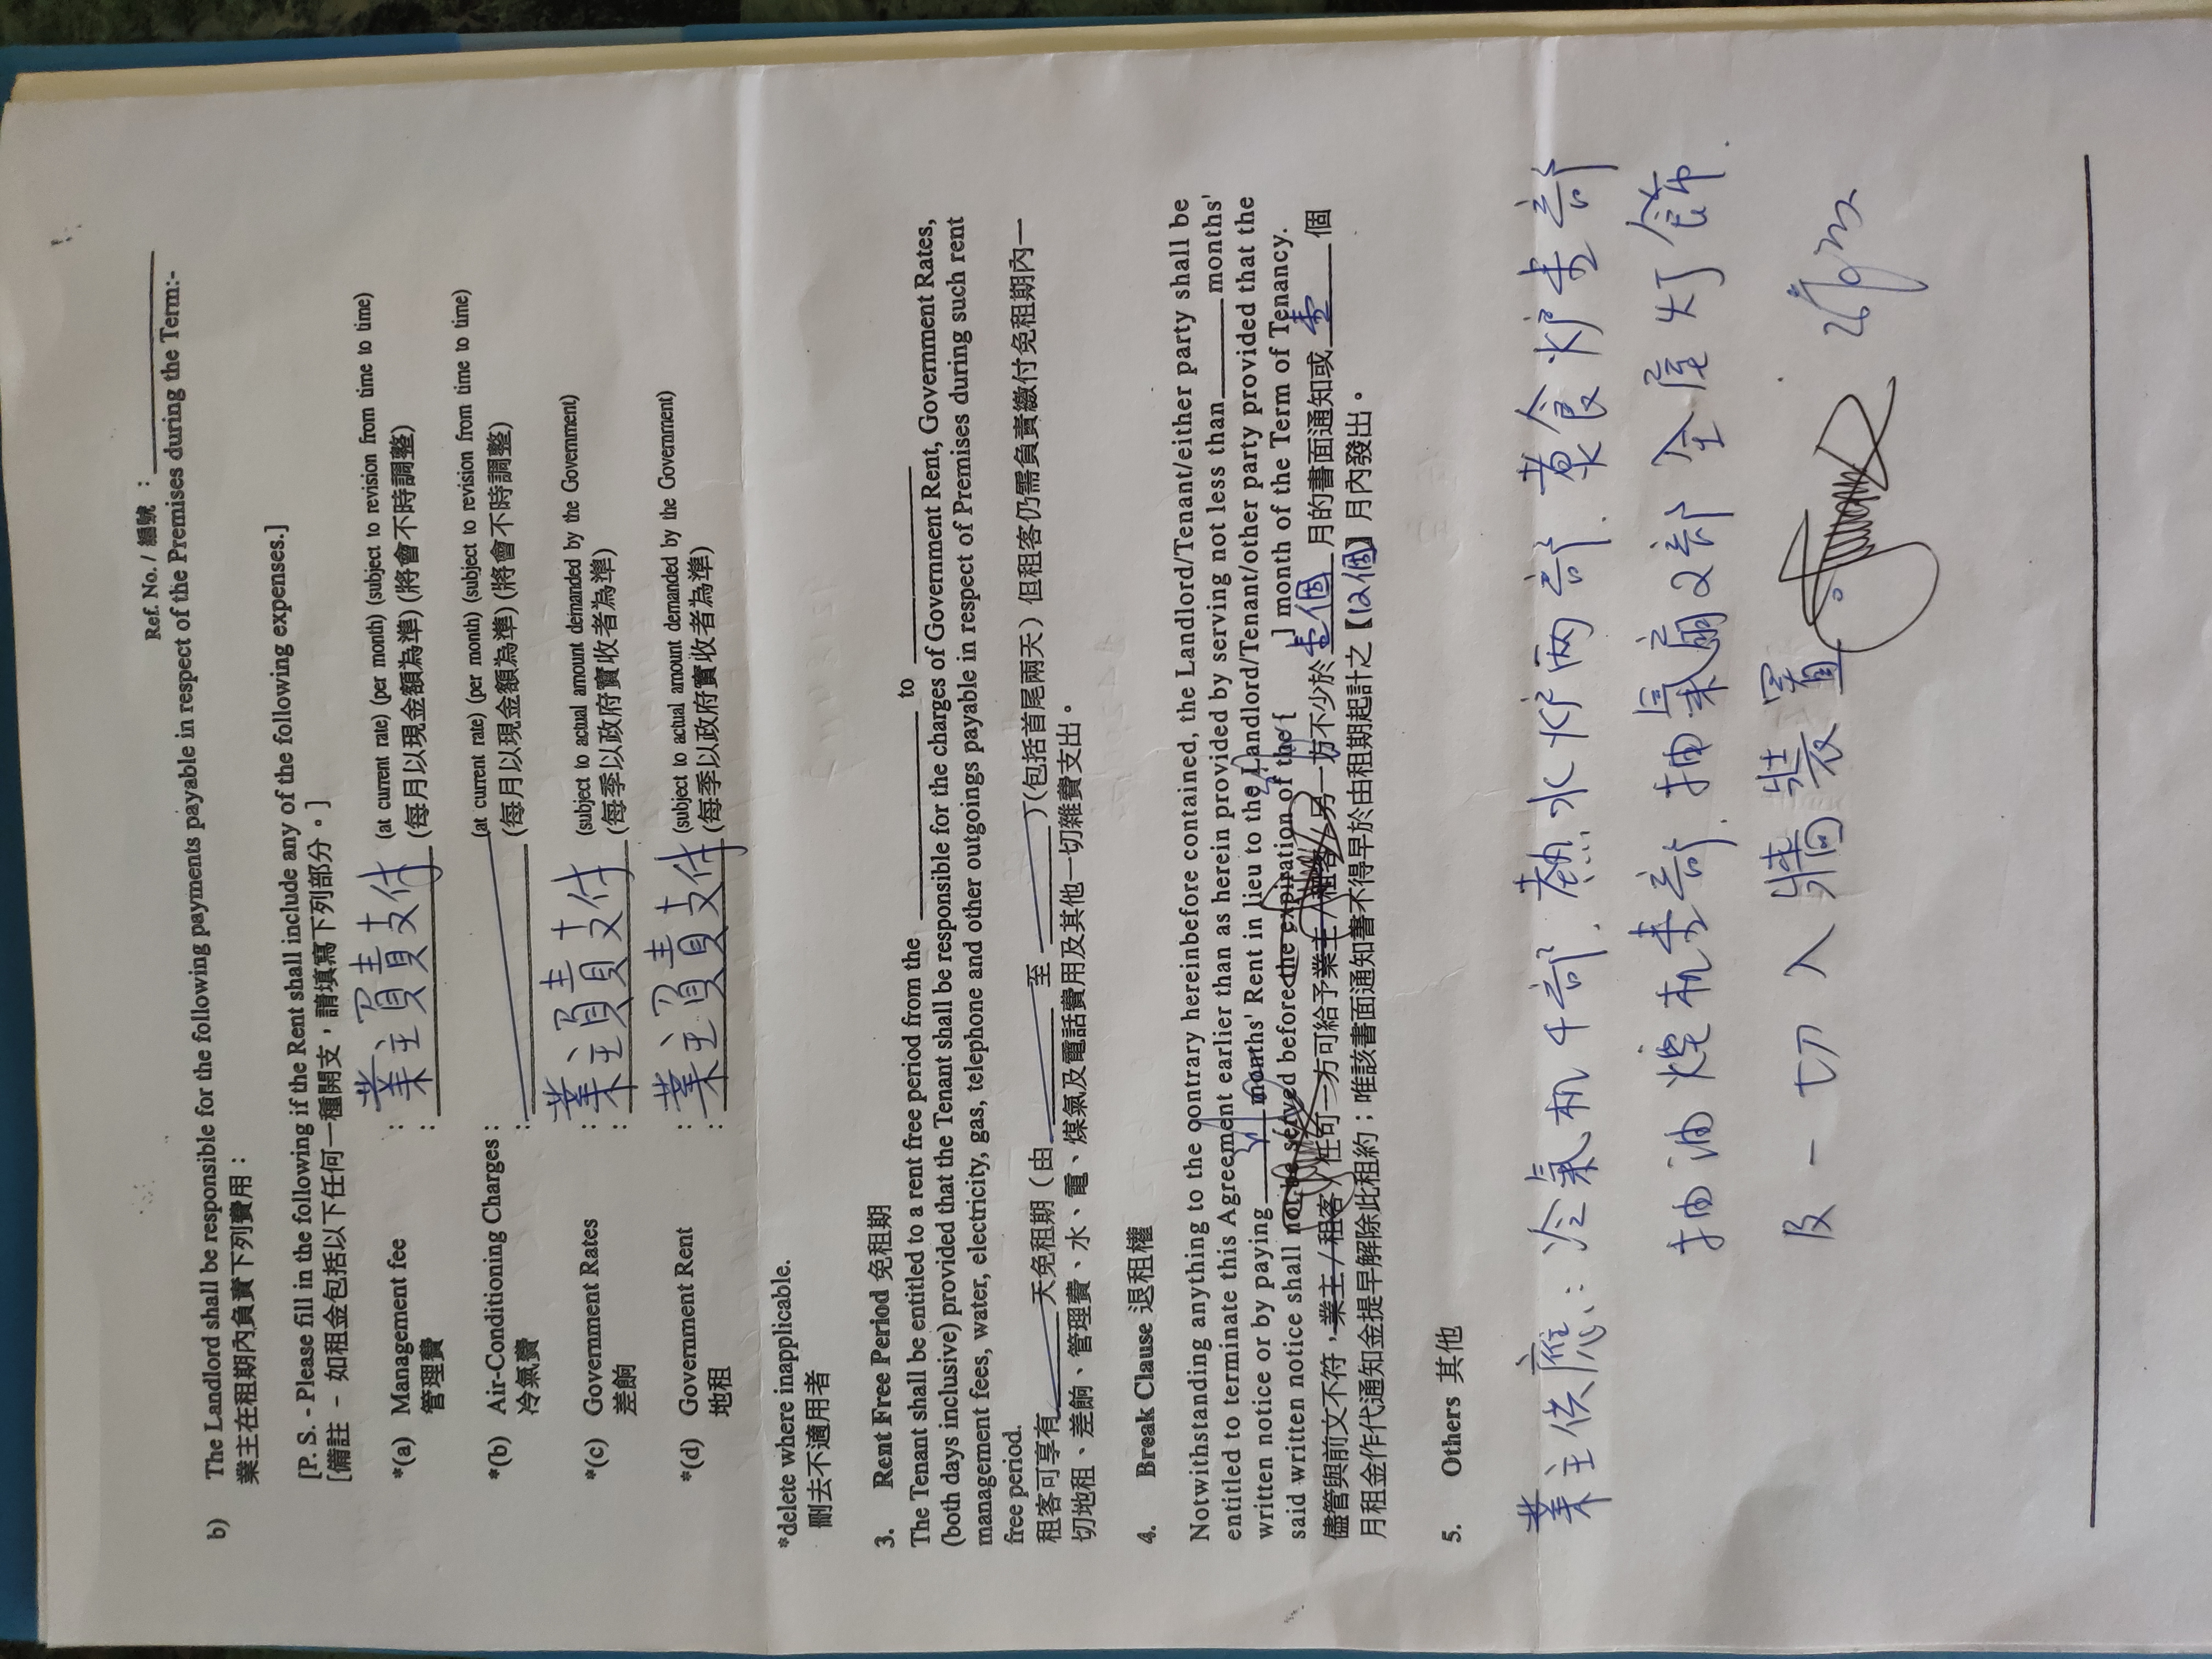 Ref. No. / 編號 :
b) The Landlord shall be responsible for the following payments payable in respect of the Premises during the Term:-
業主在租期內負責下列費用：
[P. S. - Please fill in the following if the Rent shall include any of the following expenses.]
[備註 - 如租金包括以下任何一種開支，請填寫下列部分。]
*(a) Management fee : 業主負責支付 (at current rate) (per month) (subject to revision from time to time)
管理費 : (每月以現金額為準) (將會不時調整)
*(b) Air-Conditioning Charges : (at current rate) (per month) (subject to revision from time to time)
冷氣費 : (每月以現金額為準) (將會不時調整)
*(c) Government Rates : 業主負責支付 (subject to actual amount demanded by the Government)
差餉 : (每季以政府實收者為準)
*(d) Government Rent : 業主負責支付 (subject to actual amount demanded by the Government)
地租 : (每季以政府實收者為準)
*delete where inapplicable.
刪去不適用者
3. Rent Free Period 免租期
The Tenant shall be entitled to a rent free period from the ______ to ______
(both days inclusive) provided that the Tenant shall be responsible for the charges of Government Rent, Government Rates,
management fees, water, electricity, gas, telephone and other outgoings payable in respect of Premises during such rent
free period.
租客可享有______天免租期（由______至______）(包括首尾兩天）但租客仍需負責繳付免租期內一
切地租、差餉、管理費、水、電、煤氣及電話費用及其他一切雜費支出。
4. Break Clause 退租權
Notwithstanding anything to the contrary hereinbefore contained, the Landlord/Tenant/either party shall be
entitled to terminate this Agreement earlier than as herein provided by serving not less than ______ months'
written notice or by paying ______ months' Rent in lieu to the Landlord/Tenant/other party provided that the
said written notice shall not be served before the expiration of the [ ] month of the Term of Tenancy.
儘管與前文不符，業主/租客/任可一方可給予業主/租客/另一方不少於 壹個 月的書面通知或 壹 個
月租金作代通知金提早解除此租約；唯該書面通知書不得早於由租期起計之【12個】月內發出。
5. Others 其他
業主供應：冷氣机4部．熱水炉兩部．煮食炉壹部
抽油煙机壹部．抽氣扇2部 全屋灯飾．
及一切入牆裝置